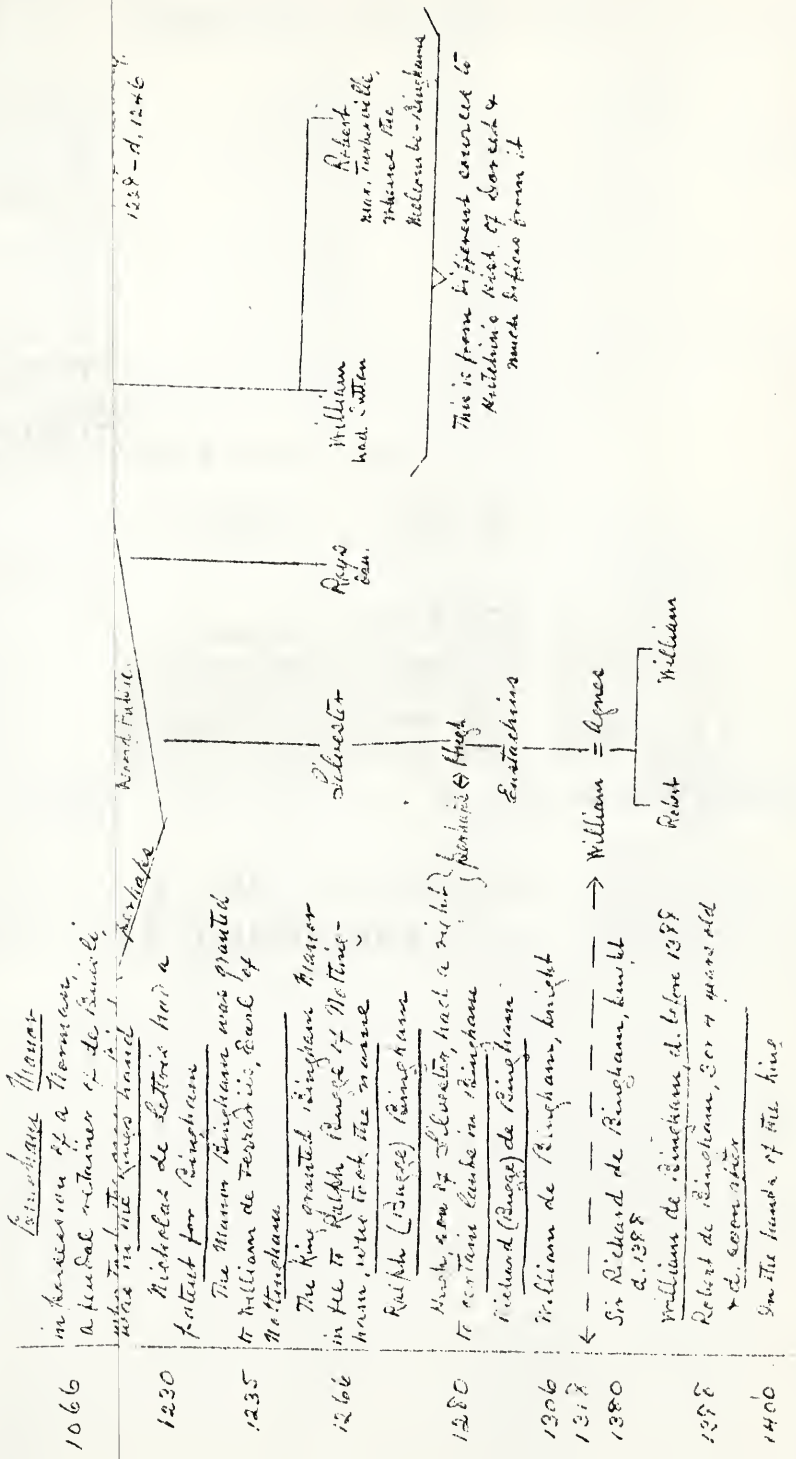 Bingham Manor
1066
in possession of a Norman,
a feudal retainer of de
was in the King's hand
perhaps
1230
Nicholas de Lettris had a
patent for Bingham
1235
The Manor Bingham was granted
to William de Ferrariis, Earl of
Nottingham
1266
The King granted Bingham Manor
in fee to Ralph Bugge of Notting-
ham, who took the name
Ralph (Bugge) Bingham
1280
Hugh, son of Silvester, had a right
to certain lands in Bingham
} perhaps
Richard (Bugge) de Bingham
1306
William de Bingham, knight
1318
1380
Sir Richard de Bingham, knight
d. 1388
William de Bingham, d. before 1388
1388
Robert de Bingham, 3 or 4 years old
& d. soon after
1400
In the hands of the King
Silvester
Hugh
Eustachius
William = Agnes
Robert
William
1228 - d. 1246
William
had Sutton
Robert
mar. Turberville,
whence the
Melcombe-Binghams
This is from different sources to
Hutchins Hist. of Dorset &
much differs from it